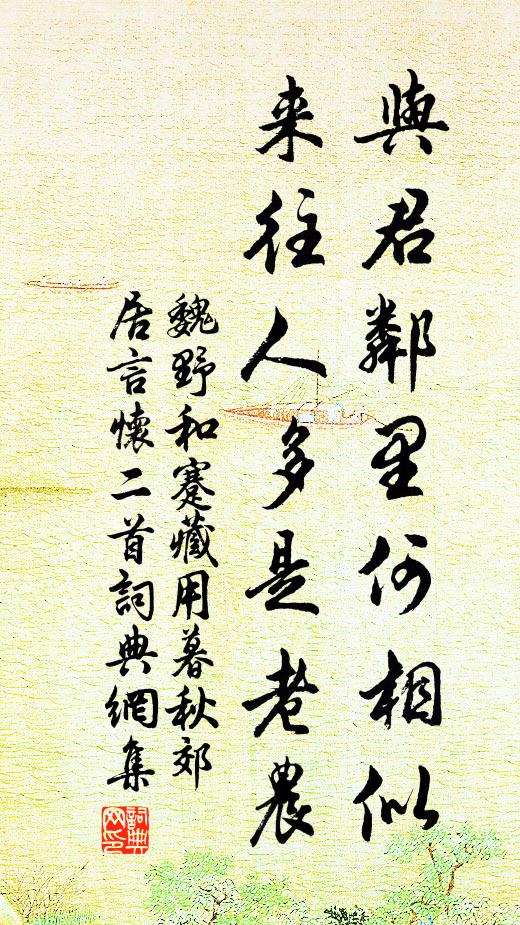 與君鄰里何相似
来往人多是老農
魏野和蹇藏用暮秋郊
居言懷二首詞典網集
詞典
网印